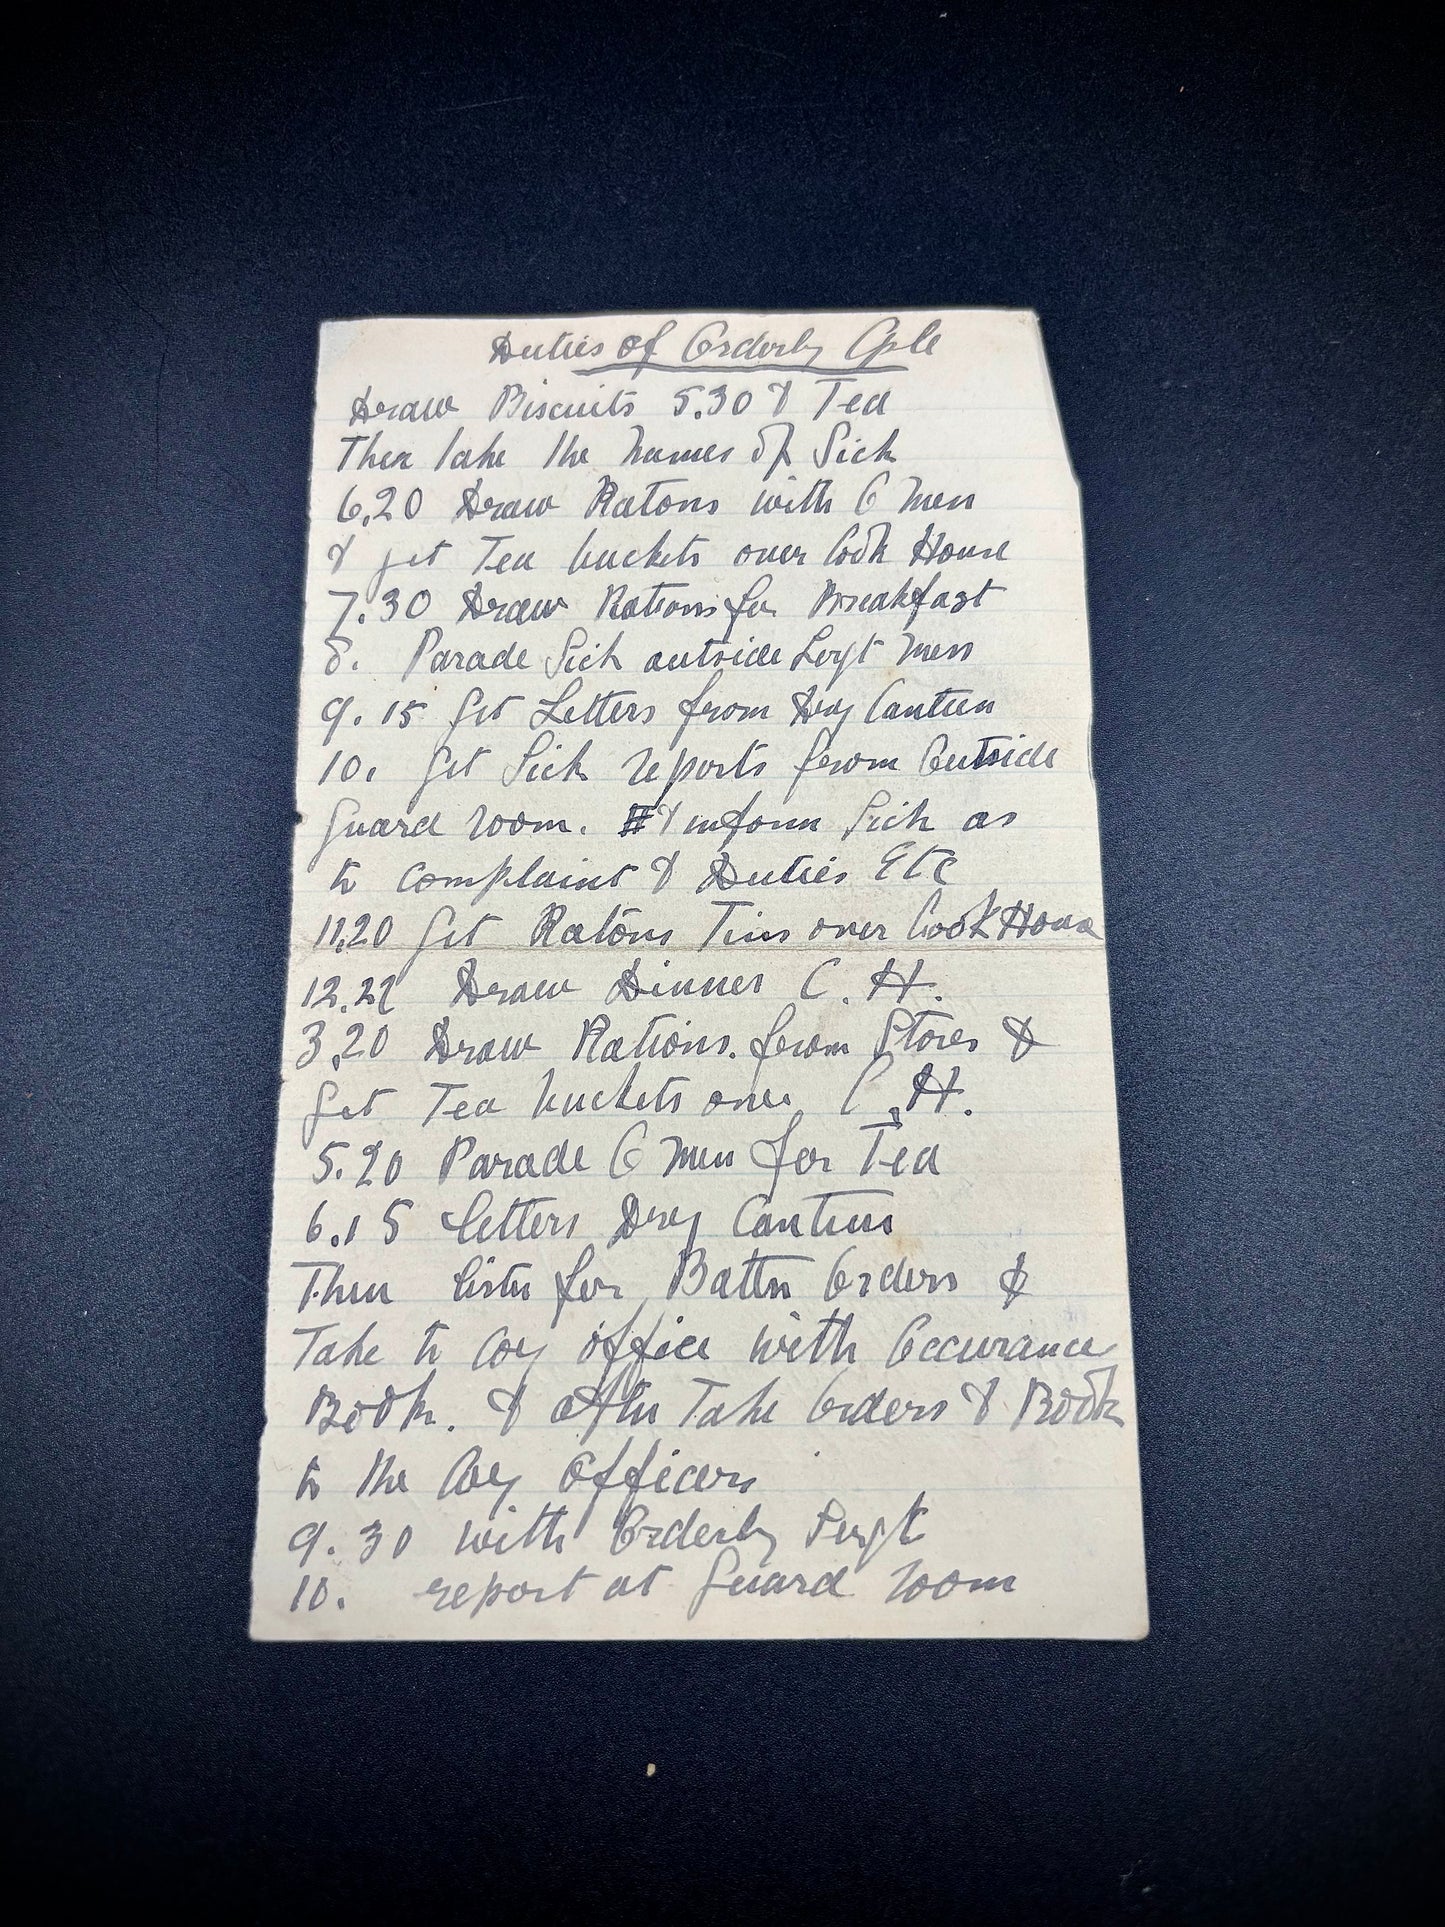 Duties of Orderly Cple
Draw Biscuits 5.30 & Tea
Then take the names of Sick
6.20 Draw Ratons with 6 men
& get Tea buckets over Cook House
7.30 Draw Rations for Breakfast
8. Parade Sick outside Sergt Mess
9.15 Get Letters from Dry Canteen
10. Get Sick reports from Outside
Guard room. & inform Sick as
to complaint & Duties Etc
11.20 Get Ratons Tins over Cook House
Draw Dinner C. H.
3.20 Draw Rations. from Stores &
Get Tea buckets over C. H.
5.20 Parade 6 men for Tea
6.15 Letters Dry Canteen
Then listen for Battn Orders &
Take to Coy office with Occurance
Book. & after Take Orders & Book
to the Coy Officers
9.30 with Orderly Sergt
10. report at Guard room